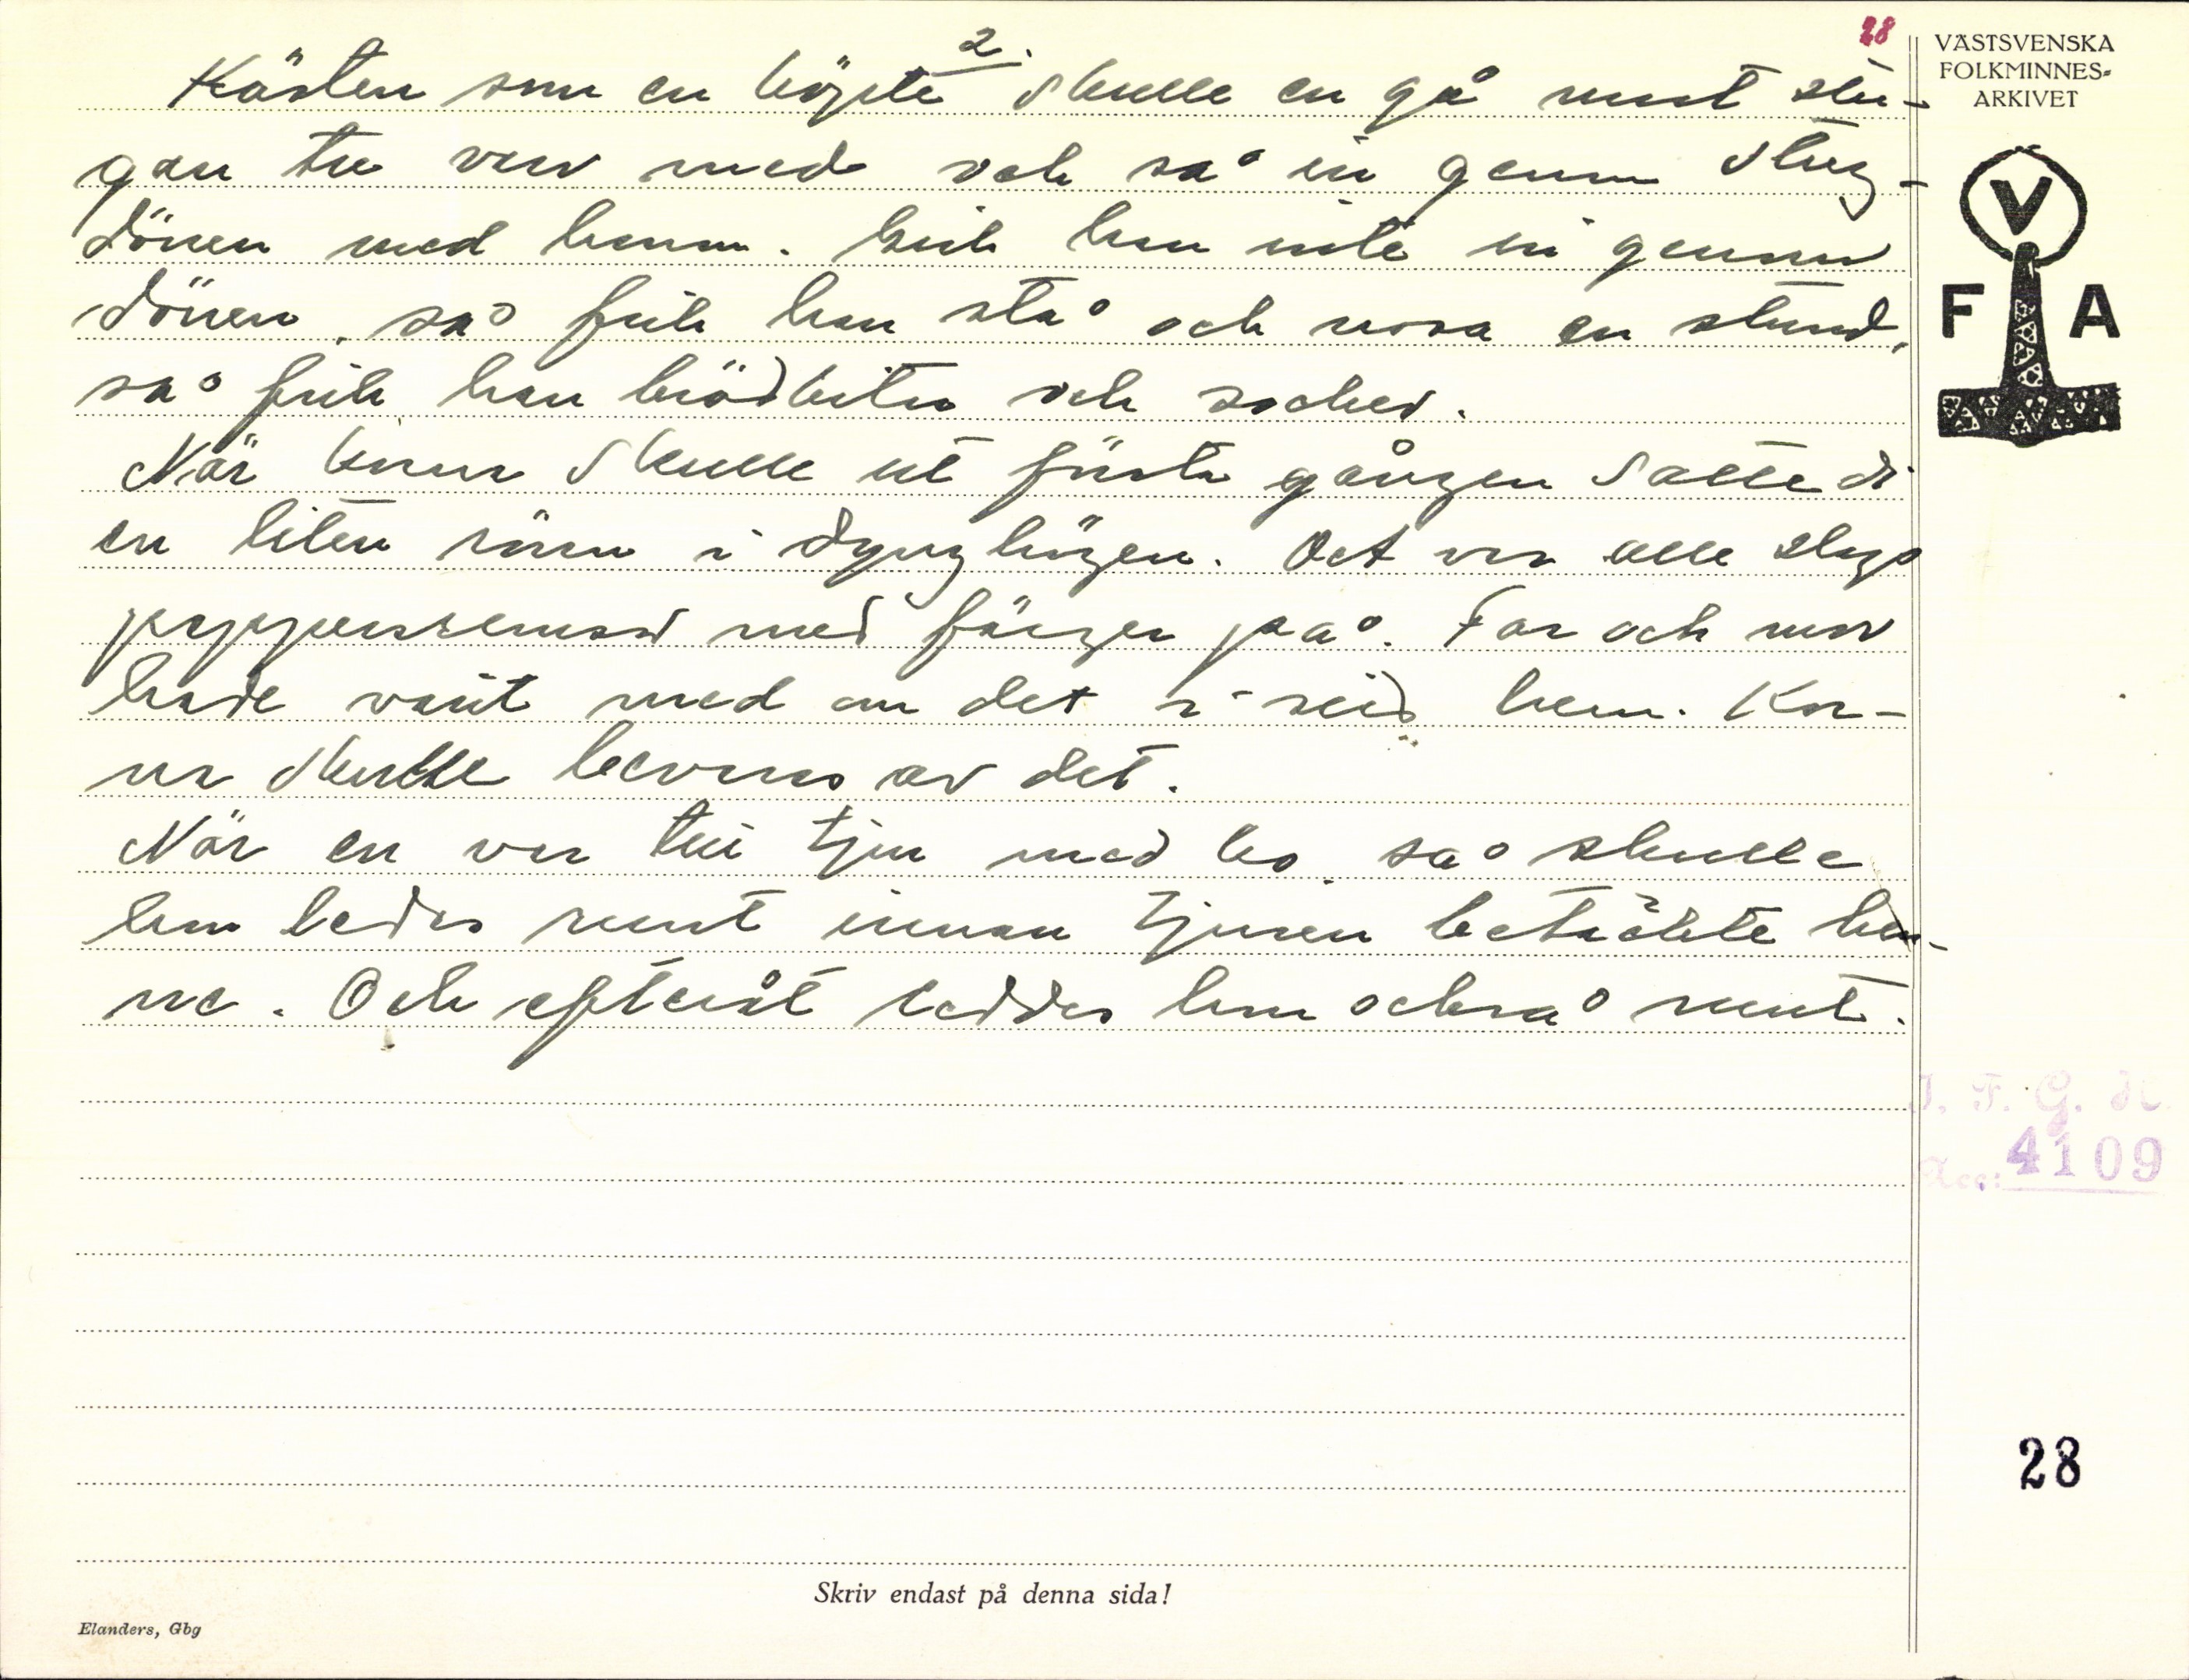 2.
28
Hästen som en köpte skulle en gå runt stu-
gan tre varv med och så in genom stug-
dören med honom. Gick han inte in genom
dören, så fick han stå och nosa en stund,
så fick han brödbitar och socker.
När korna skulle ut första gången satte di
en liten i dynghögen. Det var alle slags
med färger på. Far och mor
hade varit med om det i hem. Kor-
na skulle av det.
När en var te tjur med ko, så skulle
hon ledas runt innan tjuren betäckte hen-
ne. Och efteråt leddes hon också runt.
VÄSTSVENSKA
FOLKMINNES-
ARKIVET
V
F A
I. F. G. H.
Acc: 4109
28
Skriv endast på denna sida!
Elanders, Gbg